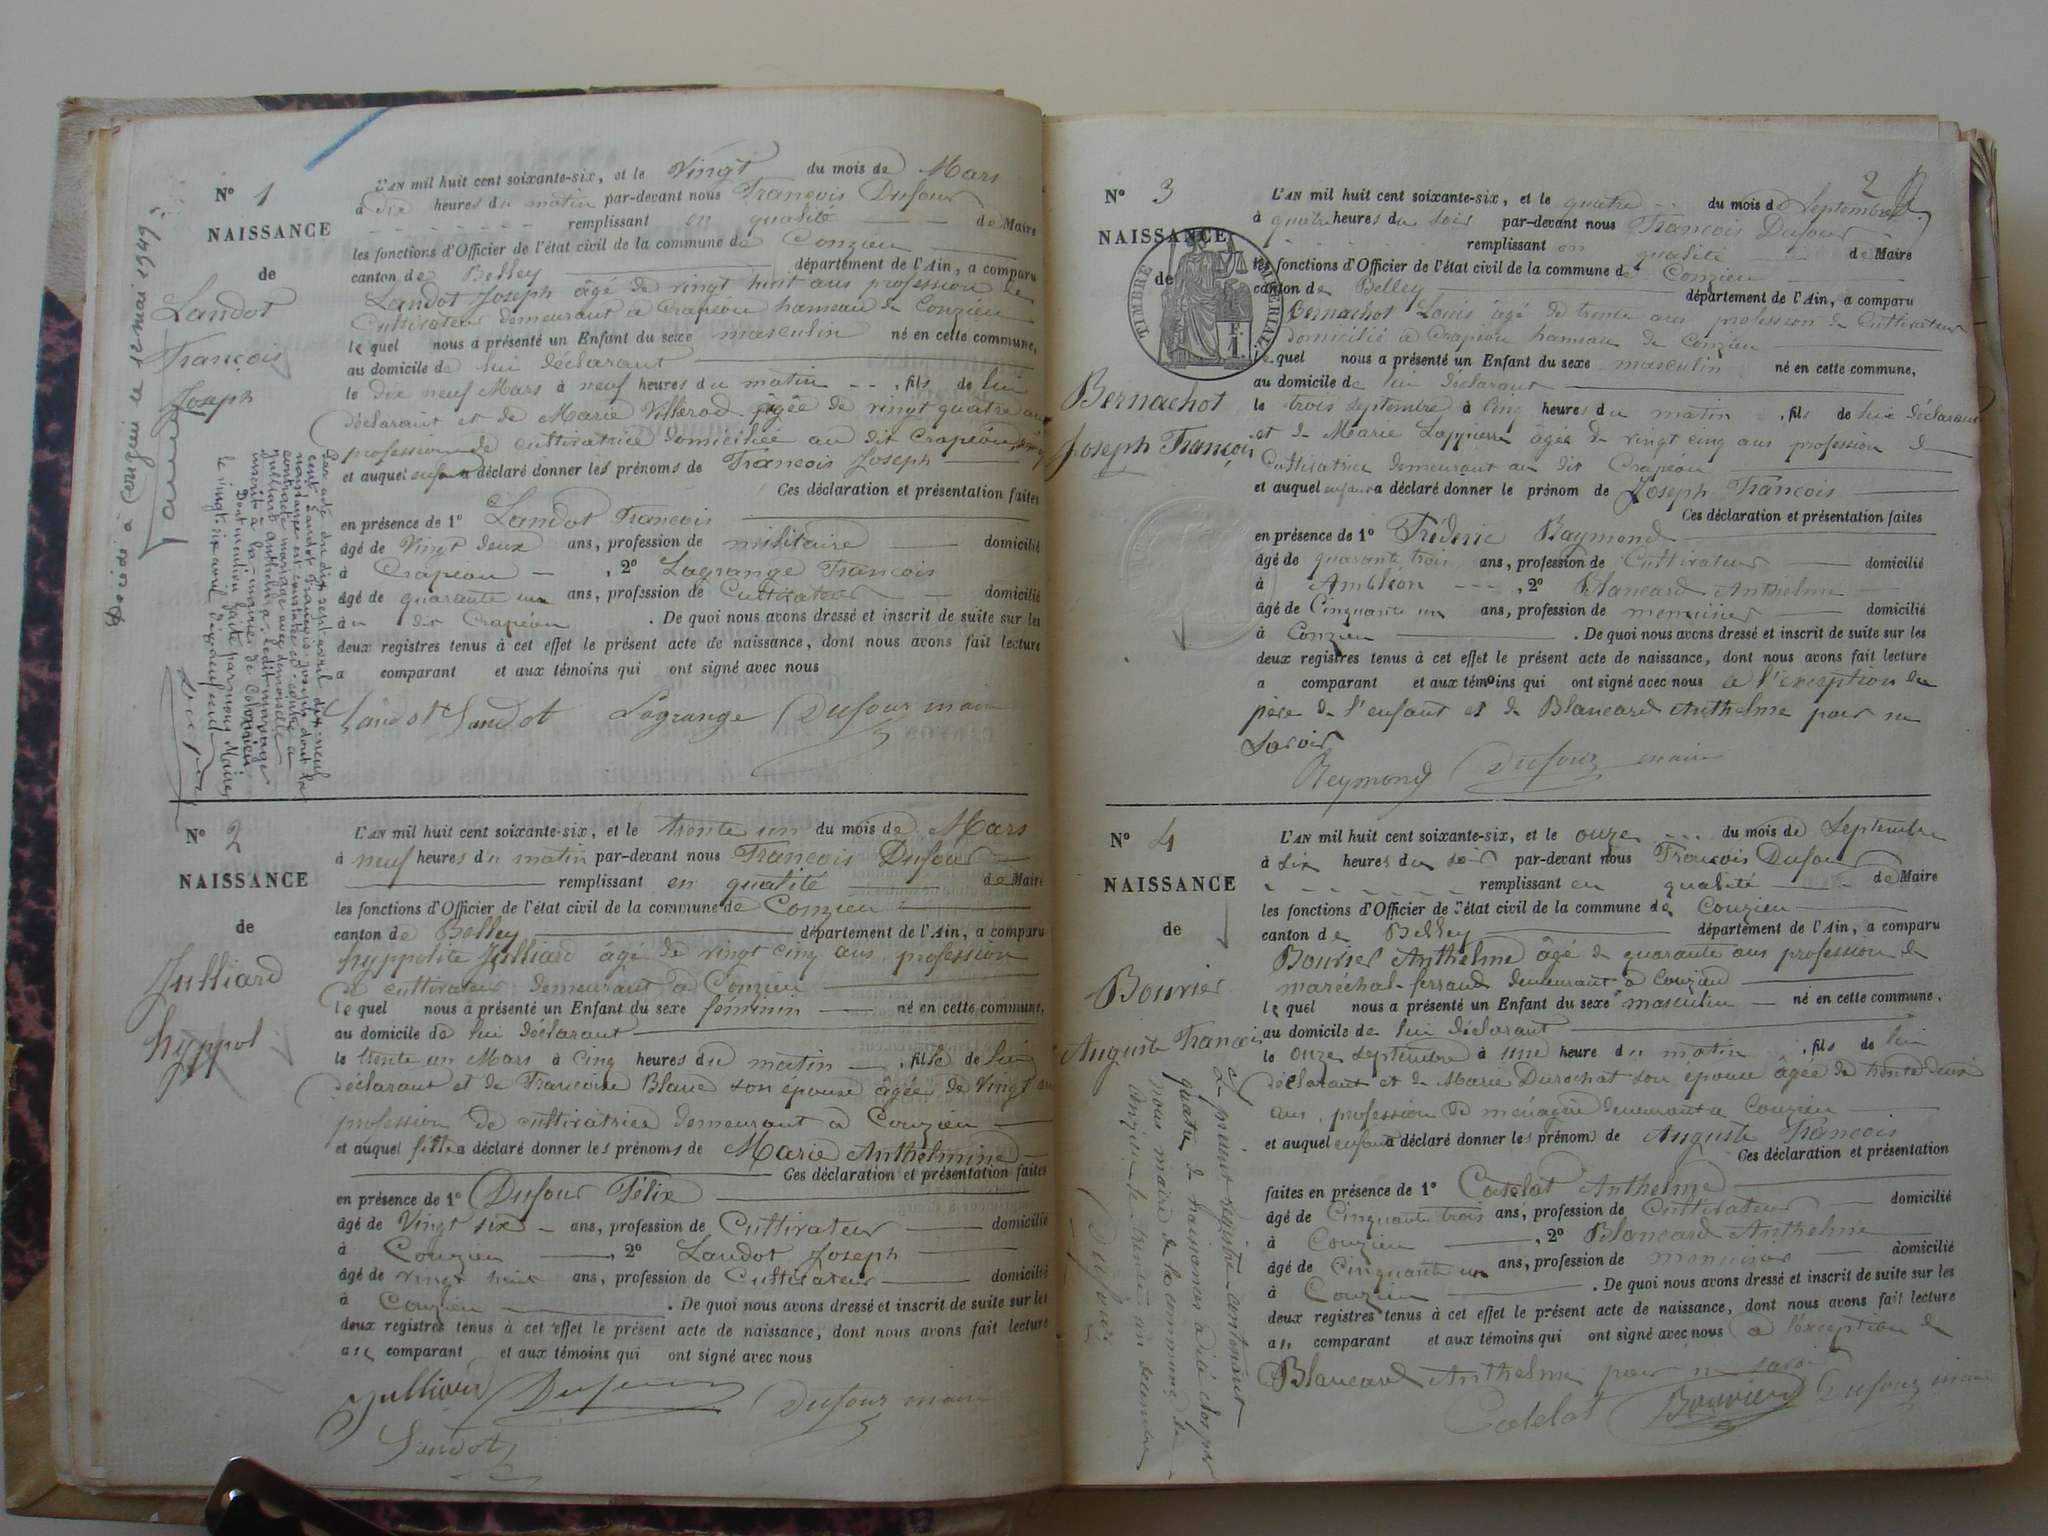 N° 1
NAISSANCE
de
Landot
François
Joseph
L'AN mil huit cent soixante-six, et le Vingt du mois de Mars
à dix heures du matin par-devant nous François Dufour
remplissant en qualité de Maire
les fonctions d'Officier de l'état civil de la commune de Conzieu
canton de Belley département de l'Ain, a comparu
Landot Joseph âgé de vingt huit ans profession de
Cultivateur demeurant à Crapéou hameau de Conzieu
lequel nous a présenté un Enfant du sexe masculin né en cette commune,
au domicile de lui déclarant
le dix neuf Mars à neuf heures du matin, fils de lui
déclarant et de Marie Villerod âgée de vingt quatre ans
profession de cultivatrice domiciliée au dit Crapéou
et auquel enfant a déclaré donner les prénoms de François Joseph
Ces déclaration et présentation faites
en présence de 1° Landot François
âgé de Vingt deux ans, profession de militaire domicilié
à Crapéou, 2° Lagrange François
âgé de quarante un ans, profession de Cultivateur domicilié
au dit Crapéou. De quoi nous avons dressé et inscrit de suite sur les
deux registres tenus à cet effet le présent acte de naissance, dont nous avons fait lecture
a comparant et aux témoins qui ont signé avec nous
Landot Landot Lagrange Dufour maire
Décédé à Conzieu le 12 mai 1949
Par acte du dix sept avril dix-neuf
cent, Landot François Joseph dont la
naissance est constatée ci-contre a
contracté mariage avec demoiselle
Julliard Anthelmine. Ledit mariage
inscrit à la mairie de Colomieu
Dont mention faite par nous Maire
le vingt six avril dix neuf cent
N° 2
NAISSANCE
de
Julliard
hyppol
L'AN mil huit cent soixante-six, et le trente un du mois de Mars
à neuf heures du matin par-devant nous François Dufour
remplissant en qualité de Maire
les fonctions d'Officier de l'état civil de la commune de Conzieu
canton de Belley département de l'Ain, a comparu
hyppolite Julliard âgé de vingt cinq ans, profession
de cultivateur demeurant à Conzieu
lequel nous a présenté un Enfant du sexe féminin né en cette commune,
au domicile de lui déclarant
le trente un Mars à cinq heures du matin, fille de lui
déclarant et de Françoise Blanc son épouse âgée de Vingt ans
profession de cultivatrice demeurant à Conzieu
et auquel fille a déclaré donner les prénoms de Marie Anthelmine
Ces déclaration et présentation faites
en présence de 1° Dufour Félix
âgé de Vingt six ans, profession de Cultivateur domicilié
à Conzieu, 2° Landot Joseph
âgé de vingt huit ans, profession de Cultivateur domicilié
à Conzieu. De quoi nous avons dressé et inscrit de suite sur les
deux registres tenus à cet effet le présent acte de naissance, dont nous avons fait lecture
au comparant et aux témoins qui ont signé avec nous
Julliard Dufour Dufour maire
Landot
2
N° 3
NAISSANCE
de
TIMBRE IMPERIAL
F. 1
Bernachot
Joseph François
L'AN mil huit cent soixante-six, et le quatre du mois de Septembre
à quatre heures du soir par-devant nous François Dufour
remplissant en qualité de Maire
les fonctions d'Officier de l'état civil de la commune de Conzieu
canton de Belley département de l'Ain, a comparu
Bernachot Louis âgé de trente ans profession de Cultivateur
domicilié à Crapéou hameau de Conzieu
lequel nous a présenté un Enfant du sexe masculin né en cette commune,
au domicile de lui déclarant
le trois septembre à cinq heures du matin, fils de lui déclarant
et de Marie Lappierre âgée de vingt cinq ans profession de
Cultivatrice demeurant au dit Crapéou
et auquel enfant a déclaré donner le prénom de Joseph François
Ces déclaration et présentation faites
en présence de 1° Fréderic Raymond
âgé de quarante trois ans, profession de Cultivateur domicilié
à Ambléon, 2° Blancard Anthelme
âgé de Cinquante un ans, profession de menuisier domicilié
à Conzieu. De quoi nous avons dressé et inscrit de suite sur les
deux registres tenus à cet effet le présent acte de naissance, dont nous avons fait lecture
a comparant et aux témoins qui ont signé avec nous a l'exception du
père de l'enfant et de Blancard Anthelme pour ne
savoir
Reymond Dufour maire
N° 4
NAISSANCE
de
Bouvier
Auguste François
L'AN mil huit cent soixante-six, et le onze du mois de Septembre
à six heures du soir par-devant nous François Dufour
remplissant en qualité de Maire
les fonctions d'Officier de l'état civil de la commune de Conzieu
canton de Belley département de l'Ain, a comparu
Bouvier Anthelme âgé de quarante ans profession de
maréchal-ferrand demeurant à Conzieu
lequel nous a présenté un Enfant du sexe masculin né en cette commune.
au domicile de lui déclarant
le onze septembre à une heure du matin, fils de lui
déclarant et de Marie Durochat son épouse âgée de trente deux
ans, profession de ménagère demeurant à Conzieu
et auquel enfant a déclaré donner les prénoms de Auguste François
Ces déclaration et présentation
faites en présence de 1° Catelat Anthelme
âgé de Cinquante trois ans, profession de Cultivateur domicilié
à Conzieu, 2° Blancard Anthelme
âgé de Cinquante un ans, profession de menuisier domicilié
à Conzieu. De quoi nous avons dressé et inscrit de suite sur les
deux registres tenus à cet effet le présent acte de naissance, dont nous avons fait lecture
au comparant et aux témoins qui ont signé avec nous a l'exception de
Blancard Anthelme pour ne savoir
Catelat Bouvier Dufour maire
Le présent registre contenant
quatre de naissances a été clos par
nous maire de la commune de
Conzieu le trente un decembre
Dufour